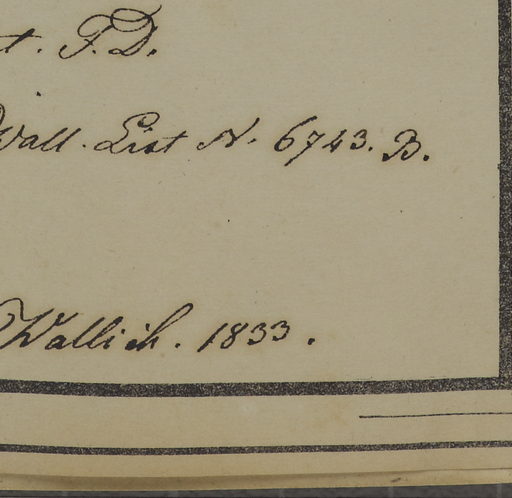 t. F.D.
Wall. List N. 6743. B.
Wallich. 1833.